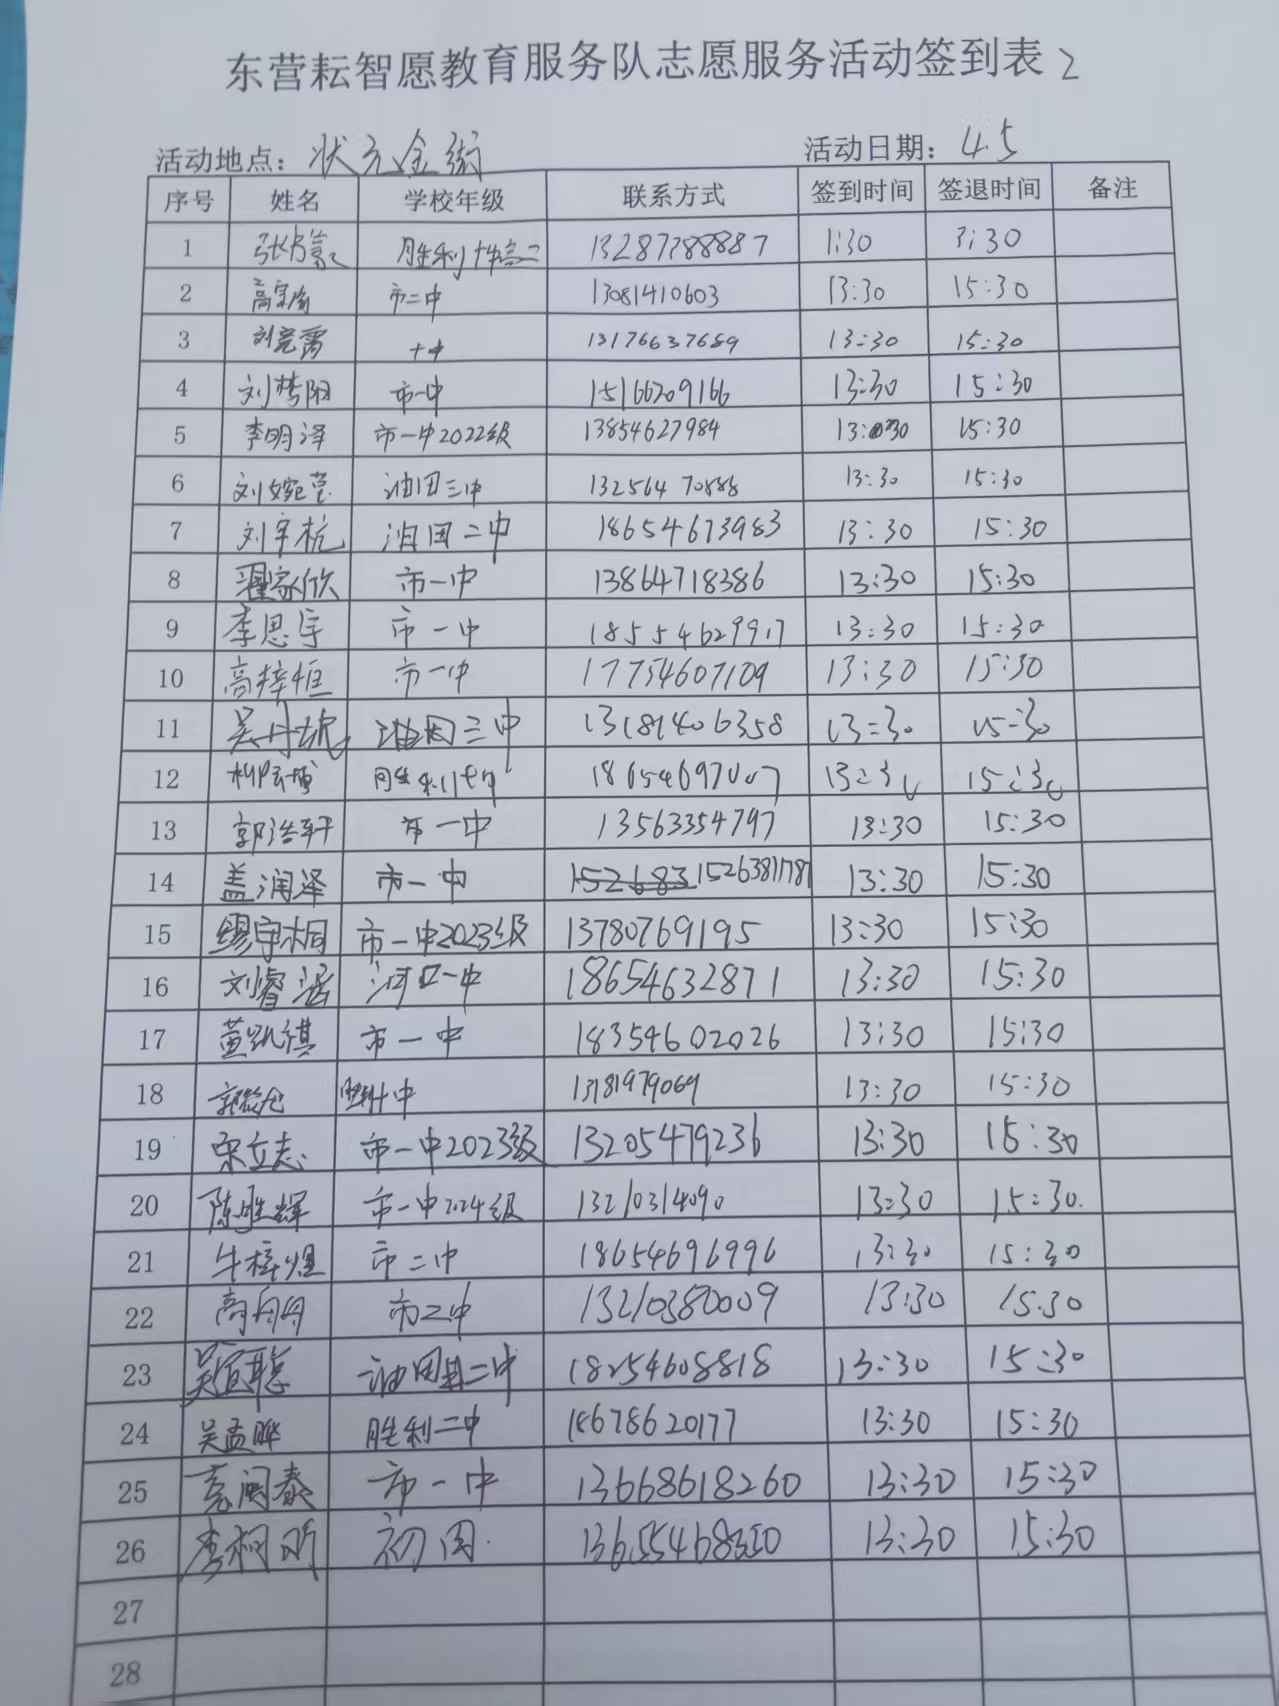 东营耘智愿教育服务队志愿服务活动签到表 2
活动地点：状元金街 活动日期：4.5
序号 姓名 学校年级 联系方式 签到时间 签退时间 备注
1 13287288887 1:30 3:30
2 市二中 13081410603 13:30 15:30
3 十中 13176637689 13:30 15:30
4 刘梦阳 市一中 15166209166 13:30 15:30
5 李明泽 市一中2022级 13854627984 13:30 15:30
6 刘婉莹 油田三中 13:30 15:30
7 刘宇杭 油田二中 18654673983 13:30 15:30
8 翟家欣 市一中 13864718386 13:30 15:30
9 李思宇 市一中 18554629917 13:30 15:30
10 高梓恒 市一中 17754607109 13:30 15:30
11 油田三中 13181406358 13:30 15:30
12 13:30 15:30
13 郭浩轩 市一中 13563354797 13:30 15:30
14 盖润泽 市一中 152683 15263811787 13:30 15:30
15 市一中2023级 13780769195 13:30 15:30
16 刘睿涵 河口一中 18654632871 13:30 15:30
17 董凯祺 市一中 18354602026 13:30 15:30
18 13181979069 13:30 15:30
19 宋立志 市一中2023级 13205479236 13:30 15:30
20 陈胜辉 市一中2024级 13210314090 13:30 15:30.
21 牛梓煜 市二中 18654696996 13:30 15:30
22 市二中 13210380009 13:30 15:30
23 油田二中 18254608818 13:30 15:30
24 吴孟晔 胜利二中 18678620177 13:30 15:30
25 市一中 13668618260 13:30 15:30
26 13:30 15:30
27
28